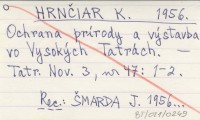 HRNČIAR K. 1956.
Ochrana prírody a výstavba
vo Vysokých Tatrách. —
Tatr. Nov. 3, nr 47: 1-2.
Rec.: ŠMARDA J. 1956...
BI/011/0249